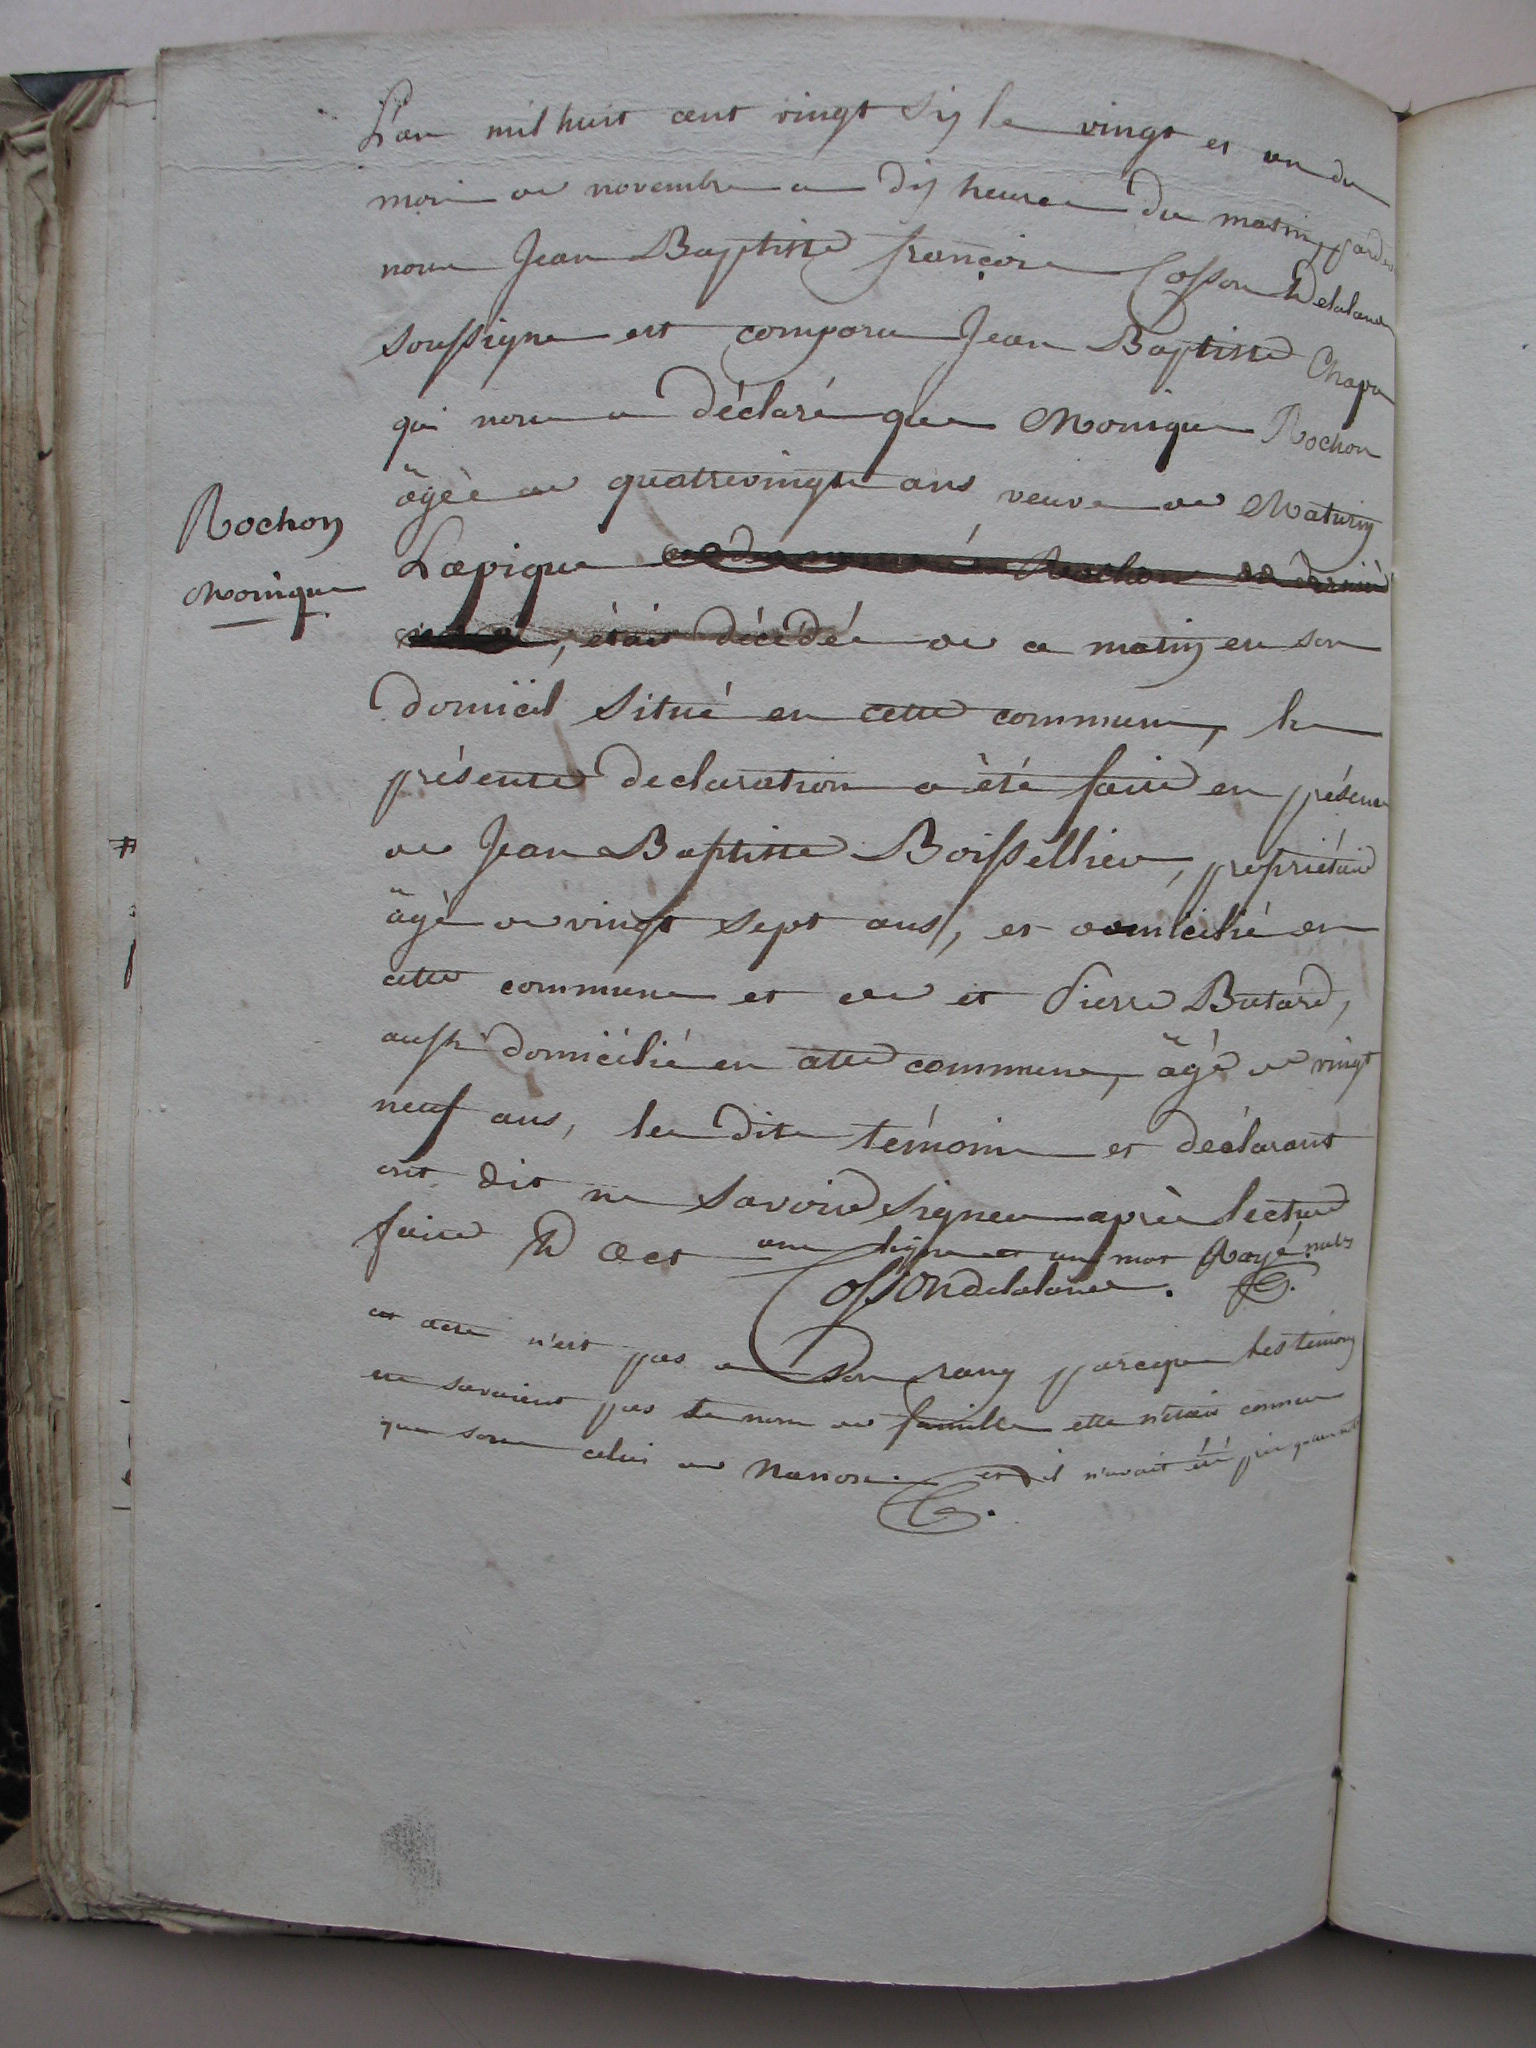 L'an mil huit cent vingt six le vingt et un du
mois de novembre a dix heures du matin, par dev
nous Jean Baptiste françois Cosson Delalande
soussigné est comparu Jean Baptiste Chapu
qui nous a déclaré que Monique Rochon
âgée de quatrevingts ans veuve de Maturin
Rochon
Monique
Lapique Rochon
, était décédée de ce matin en son
domicil situé en cette commune, la
présente declaration a été faite en présence
de Jean Baptiste Boissellier, propriétaire
âgé de vingt sept ans, et domicilié en
cette commune et de et Pierre Butard,
aussi domicilié en cette commune, âgé de vingt
neuf ans, les dits témoins et déclarant
ont dit ne savoir signer après lecture
faite une ligne et un mot Rayé nuls
Cosson delalande.
cet acte n'est pas a son rang parceque les temoins
ne savaient pas le nom de famille elle n'était connue
que sous celui de Nanon. et il n'avait été